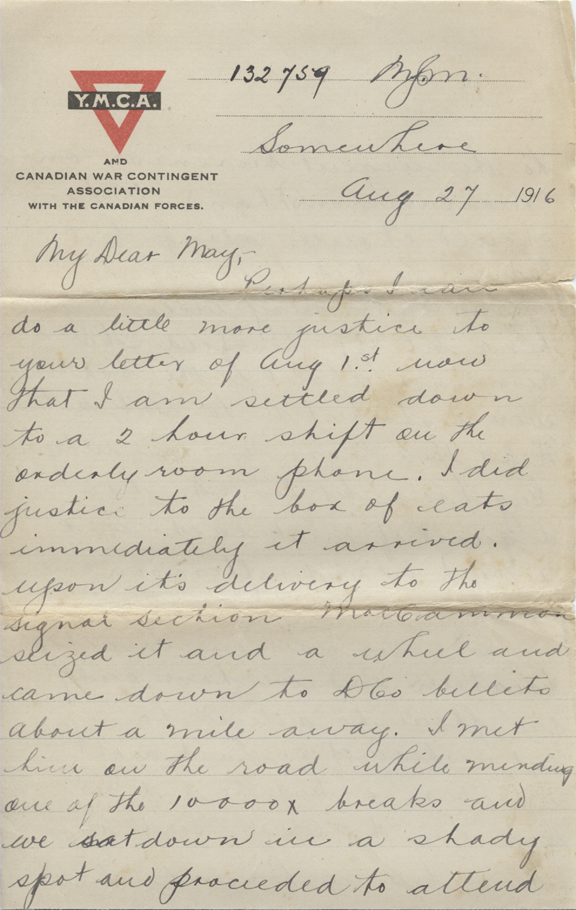 132759
Somewhere
Aug 27 1916
Y.M.C.A.
AND
CANADIAN WAR CONTINGENT
ASSOCIATION
WITH THE CANADIAN FORCES.
My Dear May,
Perhaps I can
do a little more justice to
your letter of Aug 1.st now
that I am settled down
to a 2 hour shift on the
orderly room phone. I did
justice to the box of eats
immediately it arrived.
upon it's delivery to the
signal section MacCammon
seized it and a wheel and
came down to D Co billets
about a mile away. I met
him on the road while mending
one of the 10000x breaks and
we sat down in a shady
spot and proceeded to attend